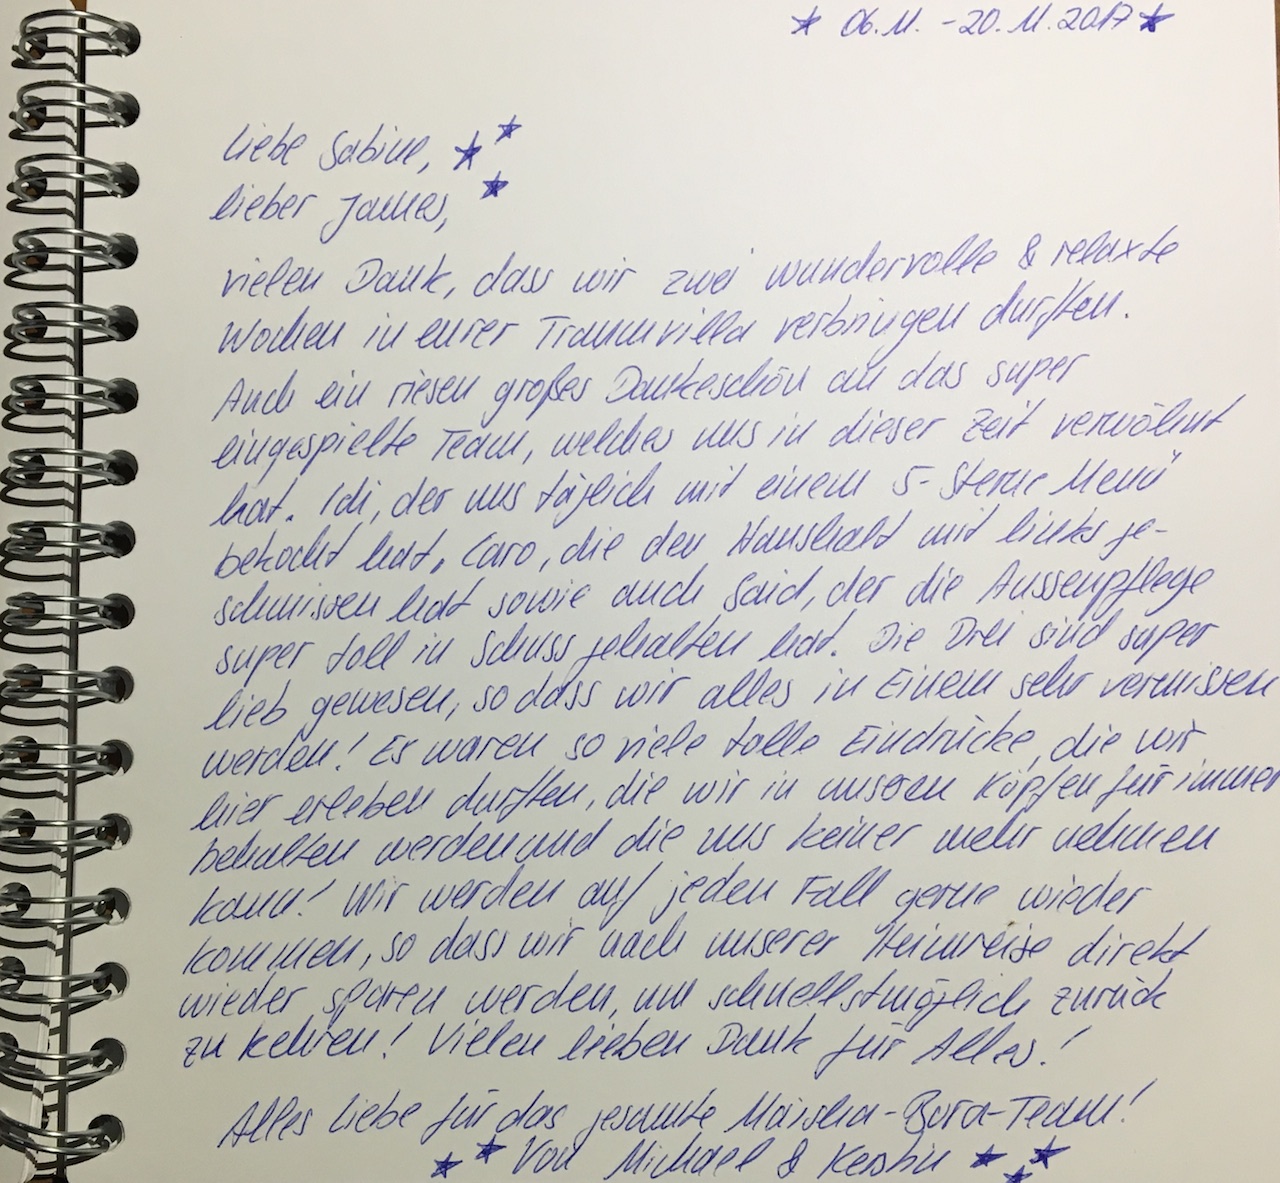 06.11. - 20.11.2017
Liebe Sabine,
lieber James,
vielen Dank, dass wir zwei wundervolle & relaxte
Wochen in eurer Traumvilla verbringen durften.
Auch ein riesen großes Dankeschön an das super
eingespielte Team, welches uns in dieser Zeit verwöhnt
hat. Idi, der uns täglich mit einem 5-Sterne Menü
bekocht hat, Caro, die den Haushalt mit links ge-
schmissen hat sowie auch Said, der die Aussenpflege
super toll in Schuss gehalten hat. Die Drei sind super
lieb gewesen, so dass wir alles in Einem sehr vermissen
werden! Es waren so viele tolle Eindrücke, die wir
hier erleben durften, die wir in unseren Köpfen für immer
behalten werden und die uns keiner mehr nehmen
kann! Wir werden auf jeden Fall gerne wieder
kommen, so dass wir nach unserer Heimreise direkt
wieder sparen werden, um schnellstmöglich zurück
zu kehren! Vielen lieben Dank für Alles!
Alles Liebe für das gesamte Maisha-Bora-Team!
Von Michael & Kerstin